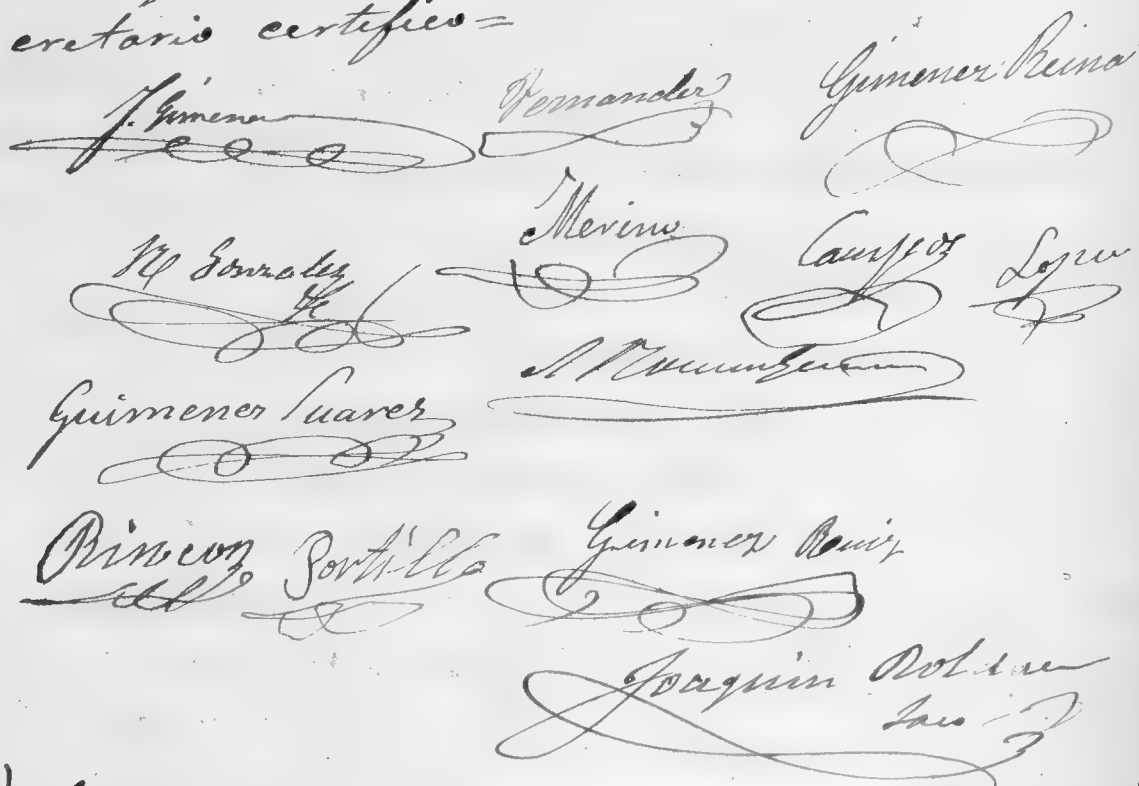 cretario certifico=
J. Gimenez Fernandez Gimenez Reina
M Gonzalez Merino Campos Lopez
Guimenez Suarez
Rincon Portillo Gimenez Ruiz
Joaquin Roldan